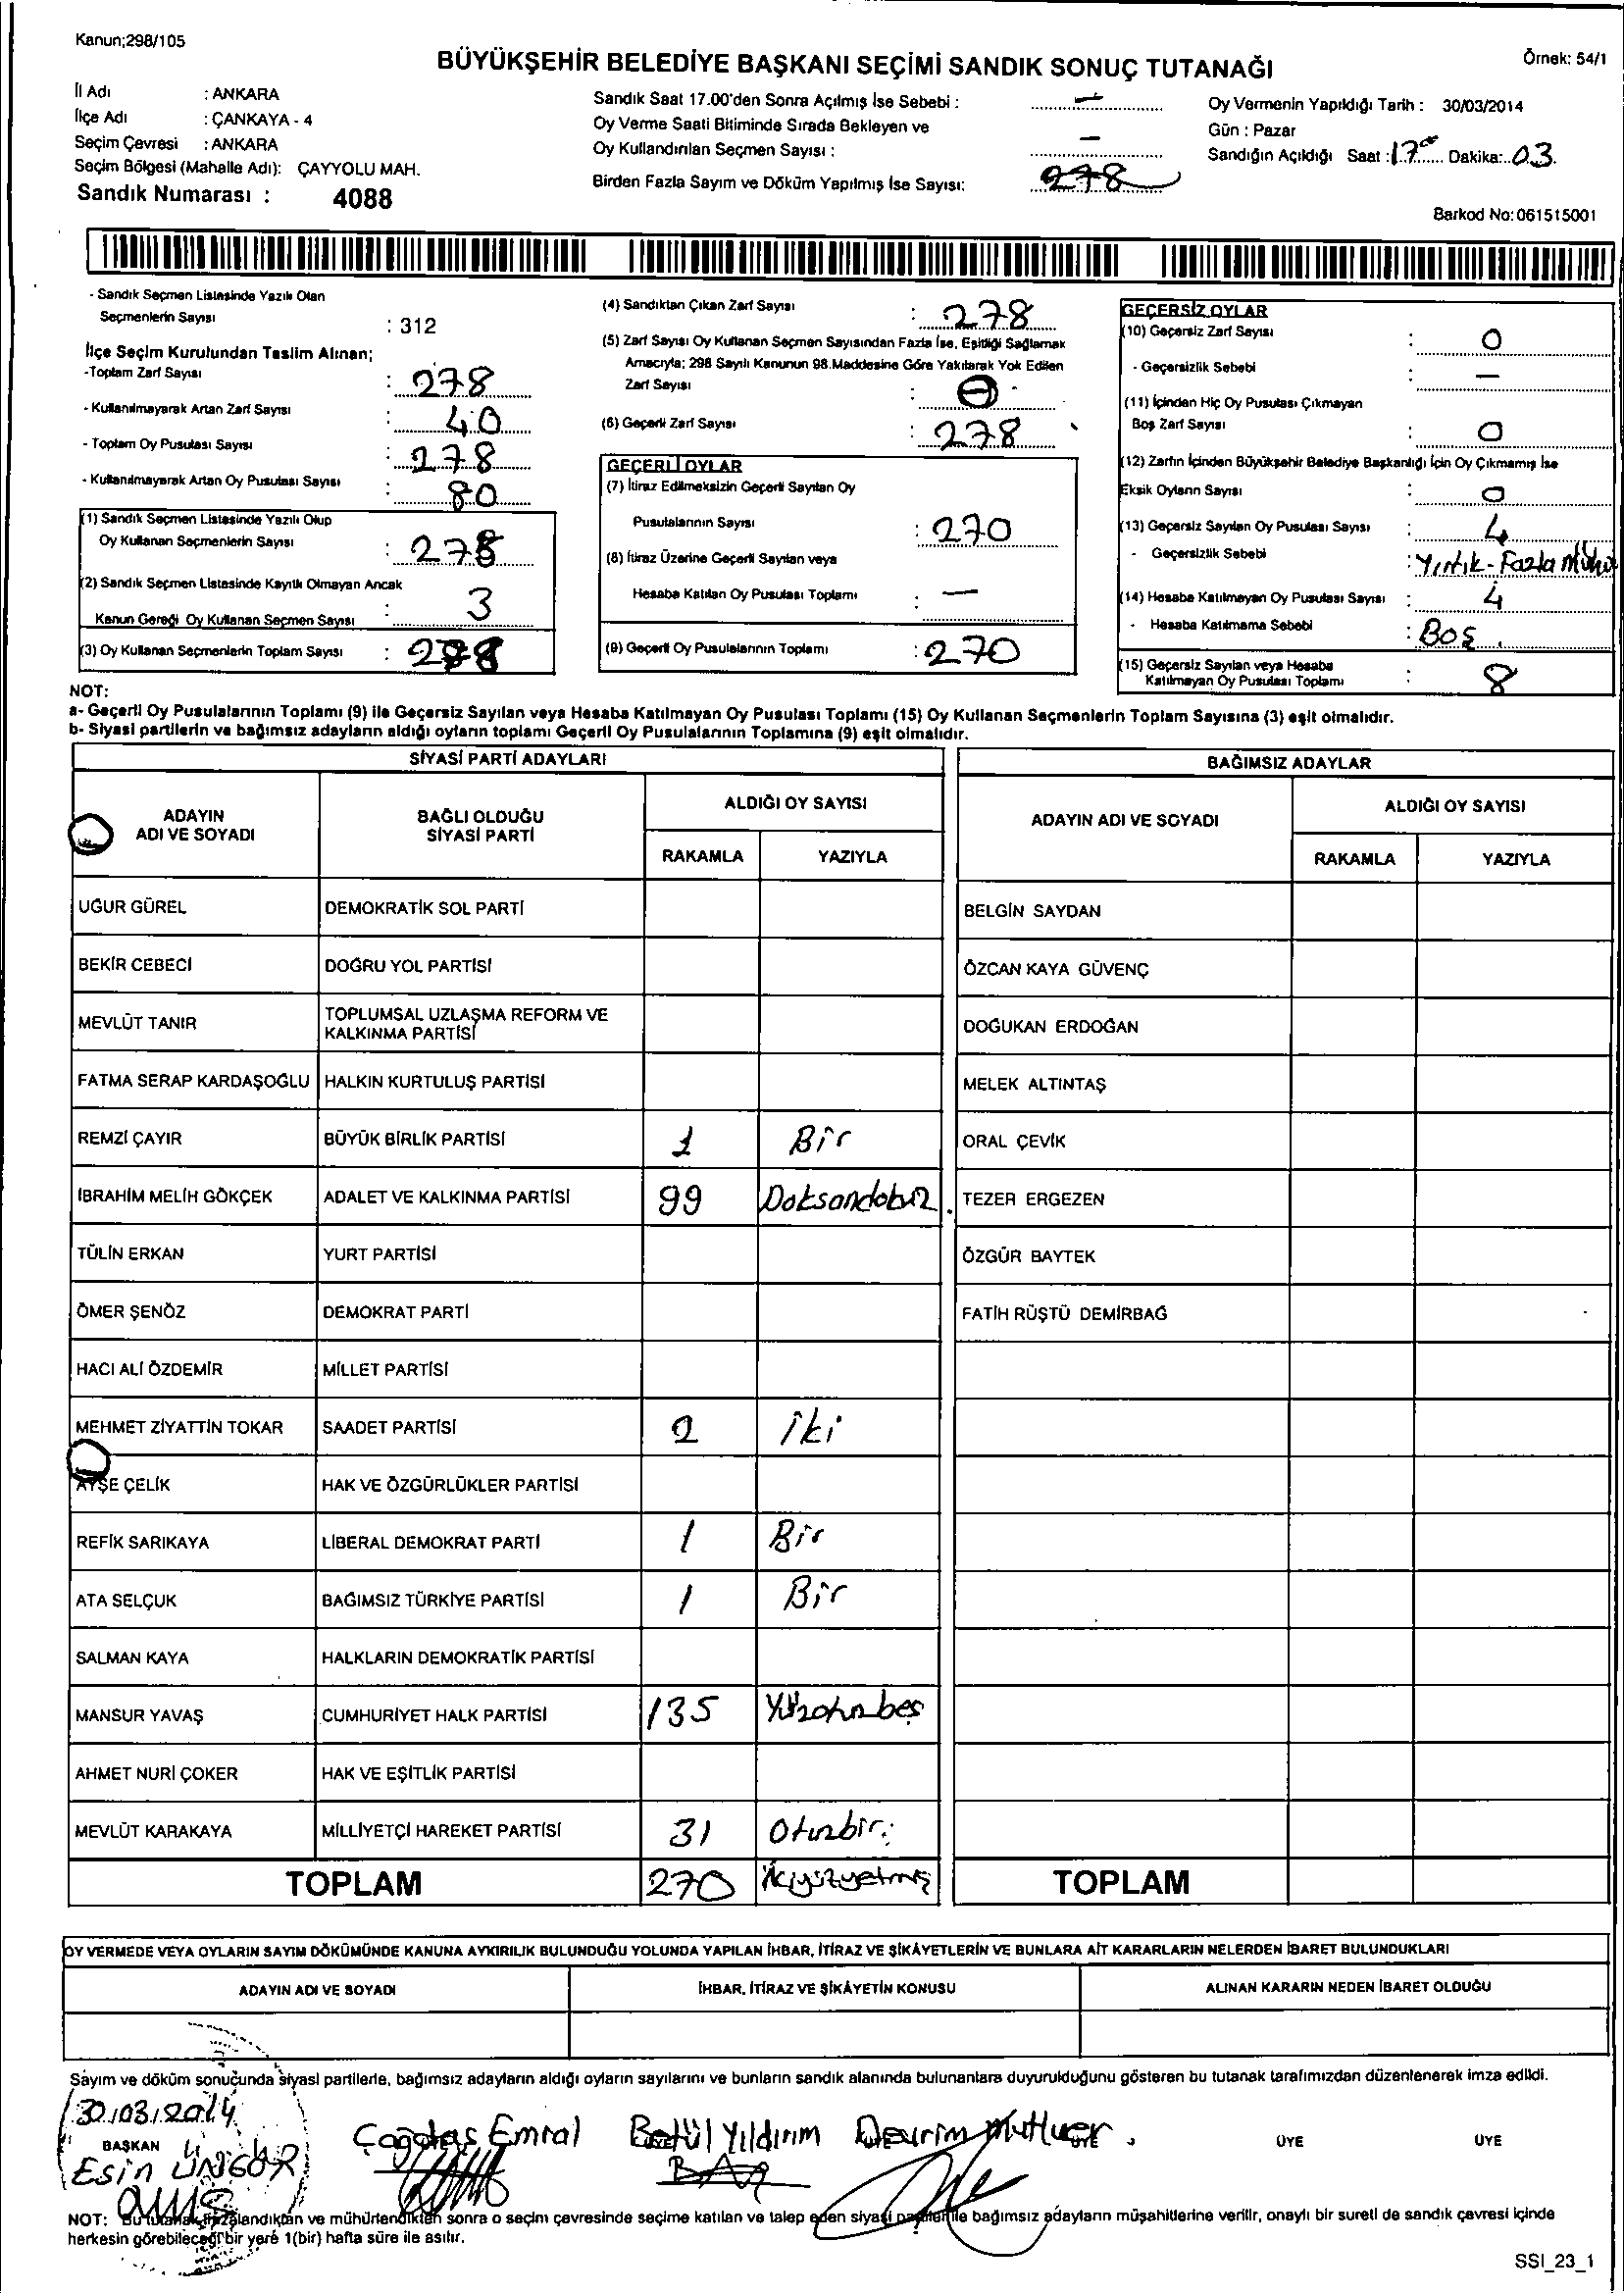 Kanun;298/105
BÜYÜKŞEHİR BELEDİYE BAŞKANI SEÇİMİ SANDIK SONUÇ TUTANAĞI
Örnek: 54/1
İl Adı : ANKARA
İlçe Adı : ÇANKAYA - 4
Seçim Çevresi : ANKARA
Seçim Bölgesi (Mahalle Adı): ÇAYYOLU MAH.
Sandık Numarası : 4088
Sandık Saat 17.00'den Sonra Açılmış İse Sebebi : —
Oy Verme Saati Bitiminde Sırada Bekleyen ve
Oy Kullandırılan Seçmen Sayısı : —
Birden Fazla Sayım ve Döküm Yapılmış İse Sayısı: 278
Oy Vermenin Yapıldığı Tarih : 30/03/2014
Gün : Pazar
Sandığın Açıldığı Saat : 17 Dakika: 03
Barkod No: 061515001
- Sandık Seçmen Listesinde Yazılı Olan
Seçmenlerin Sayısı : 312
İlçe Seçim Kurulundan Teslim Alınan;
-Toplam Zarf Sayısı : 278
- Kullanılmayarak Artan Zarf Sayısı : 40
- Toplam Oy Pusulası Sayısı : 278
- Kullanılmayarak Artan Oy Pusulası Sayısı : 80
(1) Sandık Seçmen Listesinde Yazılı Olup
Oy Kullanan Seçmenlerin Sayısı : 278
(2) Sandık Seçmen Listesinde Kayıtlı Olmayan Ancak
Kanun Gereği Oy Kullanan Seçmen Sayısı : 3
(3) Oy Kullanan Seçmenlerin Toplam Sayısı : 278
(4) Sandıktan Çıkan Zarf Sayısı : 278
(5) Zarf Sayısı Oy Kullanan Seçmen Sayısından Fazla İse, Eşitliği Sağlamak
Amacıyla; 298 Sayılı Kanunun 98.Maddesine Göre Yakılarak Yok Edilen
Zarf Sayısı : 0
(6) Geçerli Zarf Sayısı : 278
GEÇERLİ OYLAR
(7) İtiraz Edilmeksizin Geçerli Sayılan Oy
Pusulalarının Sayısı : 270
(8) İtiraz Üzerine Geçerli Sayılan veya
Hesaba Katılan Oy Pusulası Toplamı : —
(9) Geçerli Oy Pusulalarının Toplamı : 270
GEÇERSİZ OYLAR
(10) Geçersiz Zarf Sayısı : 0
- Geçersizlik Sebebi : —
(11) İçinden Hiç Oy Pusulası Çıkmayan
Boş Zarf Sayısı : 0
(12) Zarfın İçinden Büyükşehir Belediye Başkanlığı İçin Oy Çıkmamış İse
Eksik Oyların Sayısı : 0
(13) Geçersiz Sayılan Oy Pusulası Sayısı : 4
- Geçersizlik Sebebi : Yırtık - Fazla Mühür
(14) Hesaba Katılmayan Oy Pusulası Sayısı : 4
- Hesaba Katılmama Sebebi : Boş.
(15) Geçersiz Sayılan veya Hesaba
Katılmayan Oy Pusulası Toplamı : 8
NOT:
a- Geçerli Oy Pusulalarının Toplamı (9) ile Geçersiz Sayılan veya Hesaba Katılmayan Oy Pusulası Toplamı (15) Oy Kullanan Seçmenlerin Toplam Sayısına (3) eşit olmalıdır.
b- Siyasi partilerin ve bağımsız adayların aldığı oyların toplamı Geçerli Oy Pusulalarının Toplamına (9) eşit olmalıdır.
SİYASİ PARTİ ADAYLARI
ADAYIN ADI VE SOYADI
BAĞLI OLDUĞU SİYASİ PARTİ
ALDIĞI OY SAYISI
RAKAMLA YAZIYLA
UĞUR GÜREL DEMOKRATİK SOL PARTİ
BEKİR CEBECİ DOĞRU YOL PARTİSİ
MEVLÜT TANIR TOPLUMSAL UZLAŞMA REFORM VE KALKINMA PARTİSİ
FATMA SERAP KARDAŞOĞLU HALKIN KURTULUŞ PARTİSİ
REMZİ ÇAYIR BÜYÜK BİRLİK PARTİSİ 1 Bir
İBRAHİM MELİH GÖKÇEK ADALET VE KALKINMA PARTİSİ 99 Doksandokuz
TÜLİN ERKAN YURT PARTİSİ
ÖMER ŞENÖZ DEMOKRAT PARTİ
HACI ALİ ÖZDEMİR MİLLET PARTİSİ
MEHMET ZİYATTİN TOKAR SAADET PARTİSİ 2 iki
AYŞE ÇELİK HAK VE ÖZGÜRLÜKLER PARTİSİ
REFİK SARIKAYA LİBERAL DEMOKRAT PARTİ 1 Bir
ATA SELÇUK BAĞIMSIZ TÜRKİYE PARTİSİ 1 Bir
SALMAN KAYA HALKLARIN DEMOKRATİK PARTİSİ
MANSUR YAVAŞ CUMHURİYET HALK PARTİSİ 135 Yüzotuzbeş
AHMET NURİ ÇOKER HAK VE EŞİTLİK PARTİSİ
MEVLÜT KARAKAYA MİLLİYETÇİ HAREKET PARTİSİ 31 Otuzbir
TOPLAM 270 ikiyüzyetmiş
BAĞIMSIZ ADAYLAR
ADAYIN ADI VE SOYADI
ALDIĞI OY SAYISI
RAKAMLA YAZIYLA
BELGİN SAYDAN
ÖZCAN KAYA GÜVENÇ
DOĞUKAN ERDOĞAN
MELEK ALTINTAŞ
ORAL ÇEVİK
TEZER ERGEZEN
ÖZGÜR BAYTEK
FATİH RÜŞTÜ DEMİRBAĞ
TOPLAM
OY VERMEDE VEYA OYLARIN SAYIM DÖKÜMÜNDE KANUNA AYKIRILIK BULUNDUĞU YOLUNDA YAPILAN İHBAR, İTİRAZ VE ŞİKÂYETLERİN VE BUNLARA AİT KARARLARIN NELERDEN İBARET BULUNDUKLARI
ADAYIN ADI VE SOYADI
İHBAR, İTİRAZ VE ŞİKÂYETİN KONUSU
ALINAN KARARIN NEDEN İBARET OLDUĞU
Sayım ve döküm sonucunda siyasi partilerle, bağımsız adayların aldığı oyların sayılarını ve bunların sandık alanında bulunanlara duyurulduğunu gösteren bu tutanak tarafımızdan düzenlenerek imza edildi.
30/03/2014
BAŞKAN
Esin ÜNGÖR
Çağdaş Emral
Betül Yıldırım
Devrim Mutluer
ÜYE ÜYE ÜYE ÜYE
NOT: Bu tutanak imzalandıktan ve mühürlendikten sonra o seçim çevresinde seçime katılan ve talep eden siyasi partiler ile bağımsız adayların müşahitlerine verilir, onaylı bir sureti de sandık çevresi içinde
herkesin görebileceği bir yere 1(bir) hafta süre ile asılır.
SSI_23_1